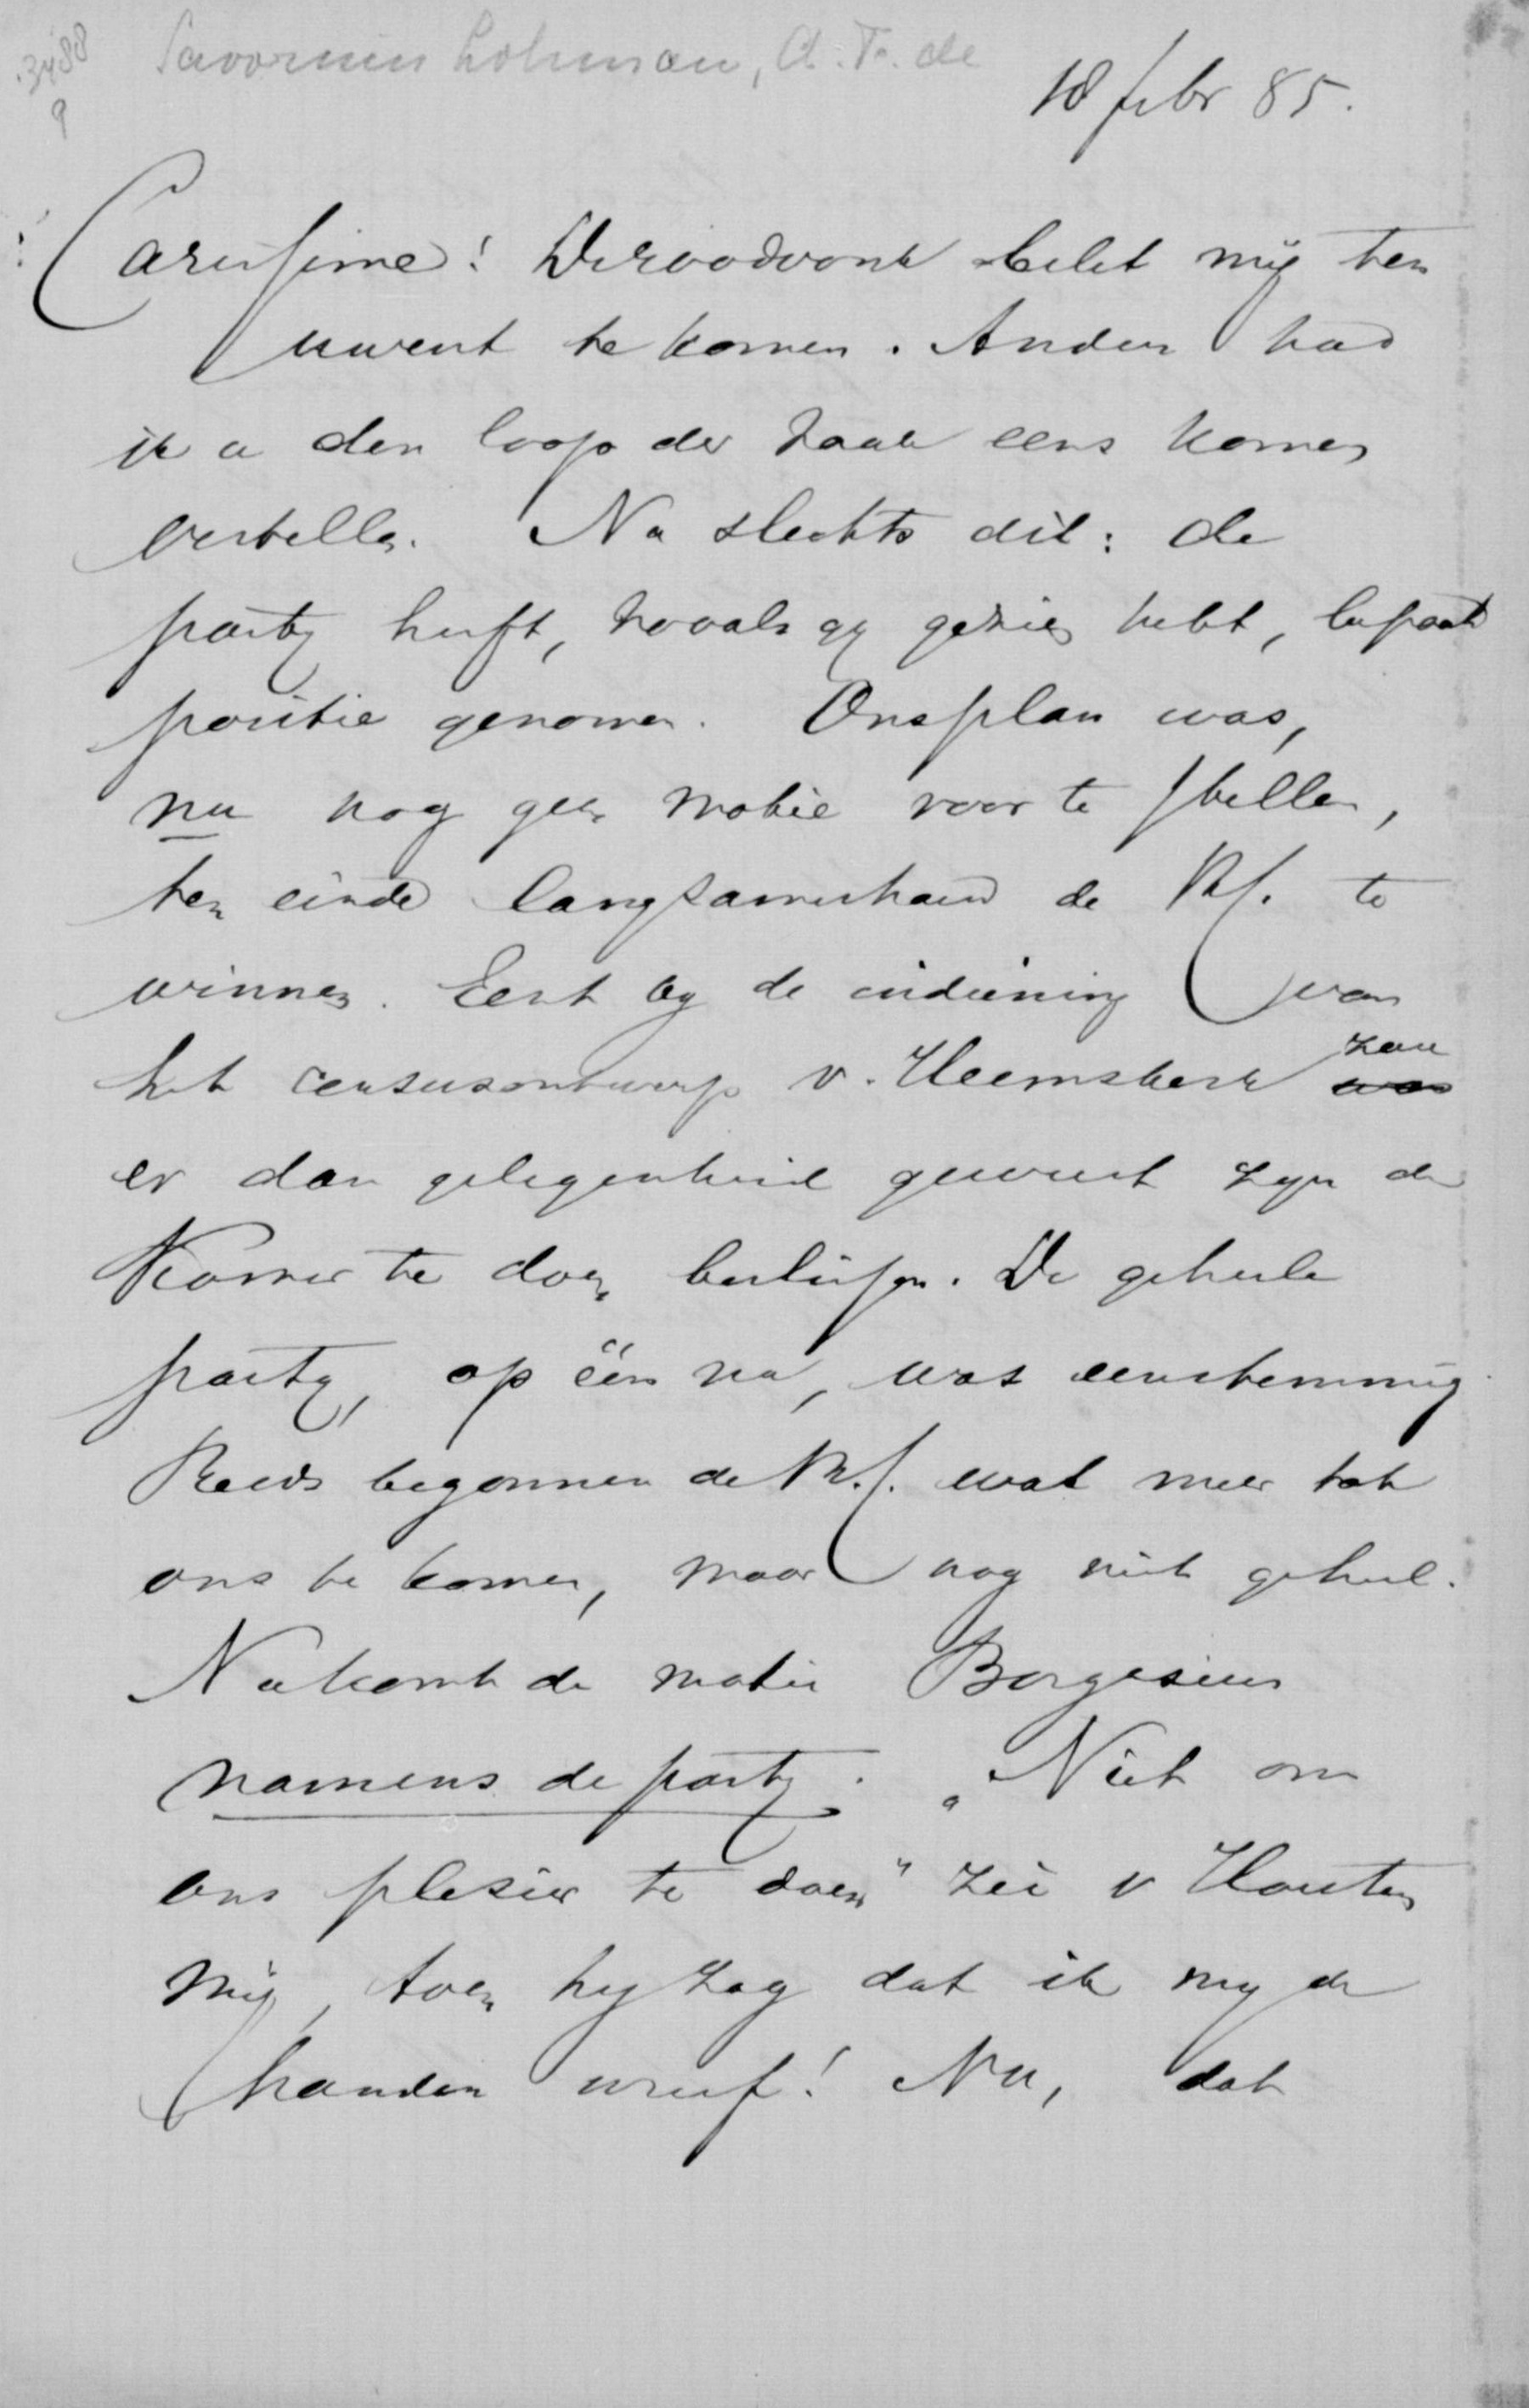 3488
9
Savornin Lohman, A. F. de
18 febr 85.
Carissime! De roodvonk belet mij ten
uwent te komen. Anders had
ik u den loop der zaak eens komen
vertellen. Nu slechts dit: de
party heeft, zooals gy gezien hebt, bepaald
positie genomen. Ons plan was,
nu nog geen motie voor te stellen,
ten einde langzamerhand de Kf. te
winnen. Eerst by de indiening van
het censusontwerp v. Heemskerk zou
er dan gelegenheid geweest zyn de
Kamer te doen beslissen. De geheele
party, op één na, was eenstemmig.
Reeds begonnen de K.f. wat meer tot
ons te komen, maar nog niet geheel.
Nu komt de motie Borgesius
namens de party. „Niet om
ons plesier te doen" zei v Houten
mij, toen hy zag dat ik my de
handen wreef! Nu, dat